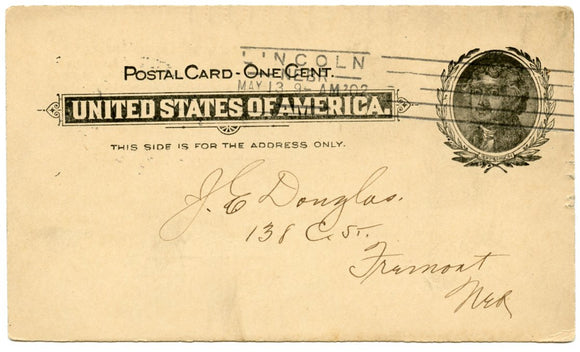 LINCOLN
NEBR.
MAY 13 9- AM '02
POSTAL CARD - ONE CENT.
UNITED STATES OF AMERICA.
THIS SIDE IS FOR THE ADDRESS ONLY.
J. E Douglas.
138 C. St.
Fremont
Neb